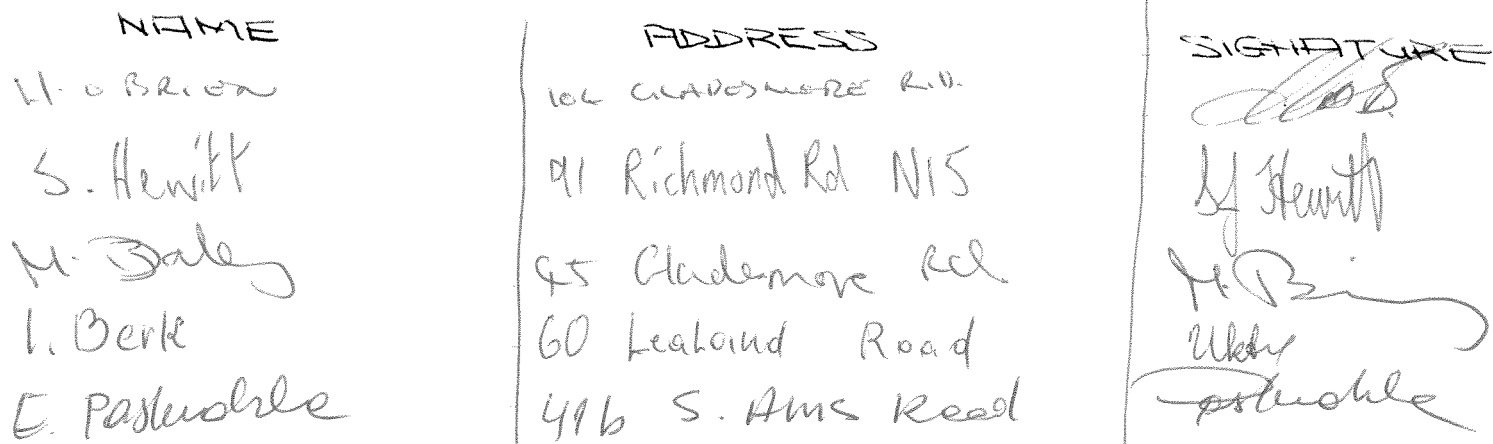 NAME ADDRESS SIGNATURE
H. O BRIEN 104 CLADESMORE RD.
S. Hewitt 91 Richmond Rd N15 SJ Hewitt
M. Bailey 45 Clademore Rd M. B
I. Berk 60 Lealand Road
E. Pastuchla 49b S. Anns Road Pastuchla